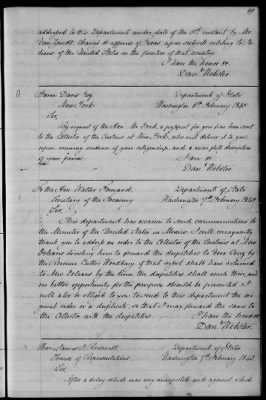 addressed to this Department under date of the 5th instant by Mr.
Van Zandt Chargé d'affaires of Texas upon subjects relating to In-
dians of the United States on the frontier of that country.
I have the honor &c
Danl Webster.
Aaron Davis Esq. Department of State
New York. Washington 8th February 1843
Sir,
By request of the Hon. Mr. Ford, a passport for you has been sent
to the Collector of the Customs at New York, who will deliver it to you
upon receiving evidence of your citizenship and a more full description
of your person.
I am &c
Danl Webster
To the Hon Walter Forward, Department of State
Secretary of the Treasury Washington 9th February 1843
Sir,
This department has occasion to send communications to
the Minister of the United States in Mexico. I will consequently
thank you to address an order to the Collector of the Customs at New
Orleans directing him to forward the despatches to Vera Cruz by
the Revenue Cutter Woodbury if that vessel shall have returned
to New Orleans by the time the despatches shall reach him, and
no better opportunity for the purpose should be presented. I
will also be obliged to you to send to this department the ori-
ginal order or a duplicate, so that I may forward the same to
the Collector with the despatches. I have the honor &c
Danl Webster.
Department of State
House of Representatives Washington 9th February 1843
Sir
After a delay which was very unexpected such against which